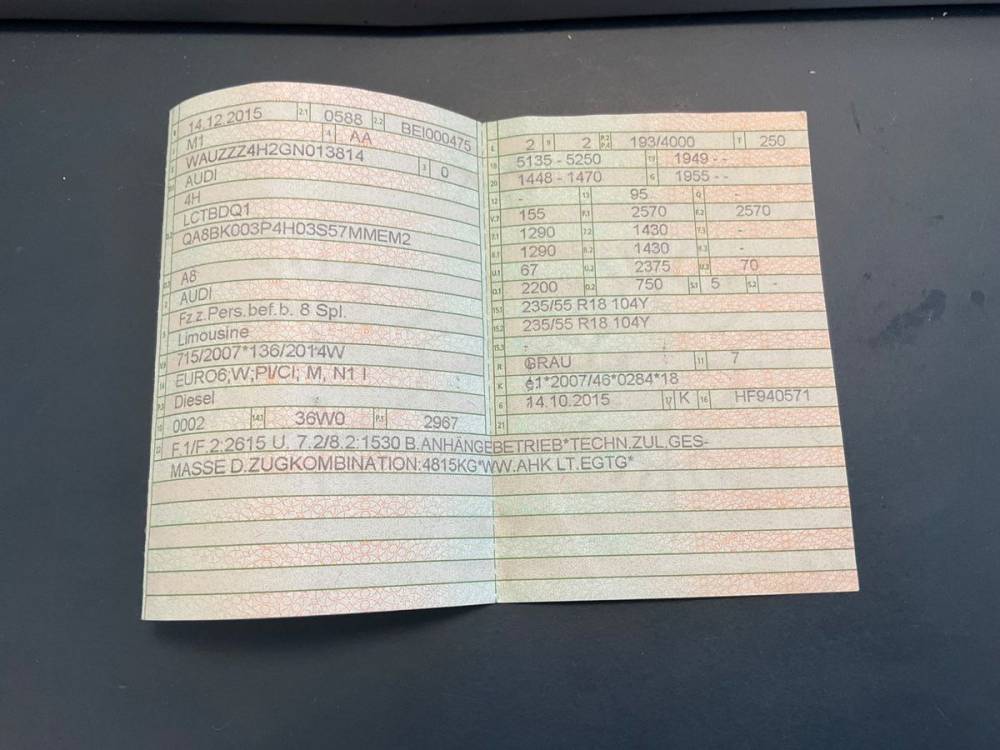 14.12.2015 2.1 0588 2.2 BEI000475
M1 4 AA
WAUZZZ4H2GN013814 3 0
AUDI
4H
LCTBDQ1
QA8BK003P4H03S57MMEM2
A8
AUDI
Fz.z.Pers.bef.b. 8 Spl.
Limousine
715/2007*136/2014W
EURO6;W;PI/CI; M, N1 I
Diesel
0002 14.1 36W0 P.1 2967
2 9 2 P.2 P.4 193/4000 T 250
18 5135 - 5250 19 1949 - -
20 1448 - 1470 G 1955 - -
12 - 13 95 Q -
V.7 155 F.1 2570 F.2 2570
7.1 1290 7.2 1430 7.3 -
8.1 1290 8.2 1430 8.3 -
U.1 67 U.2 2375 U.3 70
O.1 2200 O.2 750 S.1 5 S.2 -
15.1 235/55 R18 104Y
15.2 235/55 R18 104Y
15.3 -
R GRAU 11 7
K e1*2007/46*0284*18
6 14.10.2015 17 K 16 HF940571
21
22 F.1/F.2:2615 U. 7.2/8.2:1530 B.ANHÄNGEBETRIEB*TECHN.ZUL.GES-
MASSE D.ZUGKOMBINATION:4815KG*WW.AHK LT.EGTG*